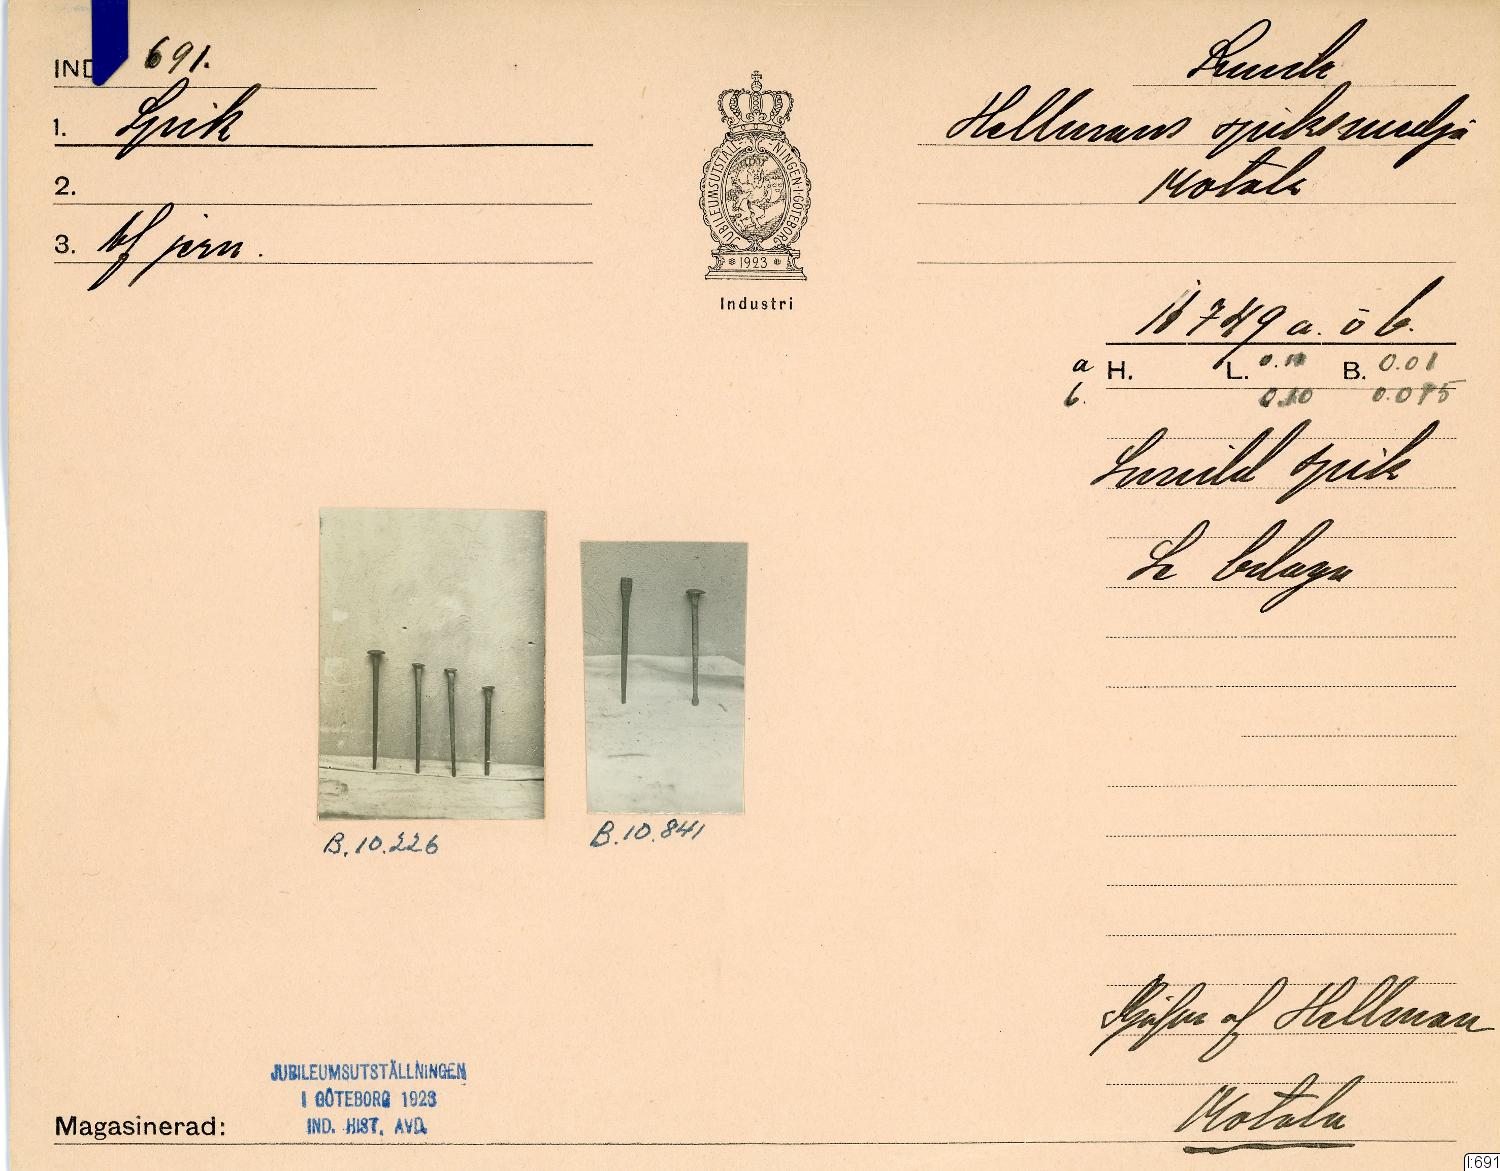 IND 691.
1. Spik
2.
3. Af jern.
JUBILEUMSUTSTÄLLNINGEN·I·GÖTEBORG
* 1923 *
Industri
Hellmans spiksmedja
Motala
16749 a. o b.
a H. L. B. 0.01
b. 0.10 0.095
Smidd spik
Se bilaga
B.10.226
B.10.841
af Hellman
Motala
JUBILEUMSUTSTÄLLNINGEN
I GÖTEBORG 1923
IND. HIST. AVD.
Magasinerad:
I:691